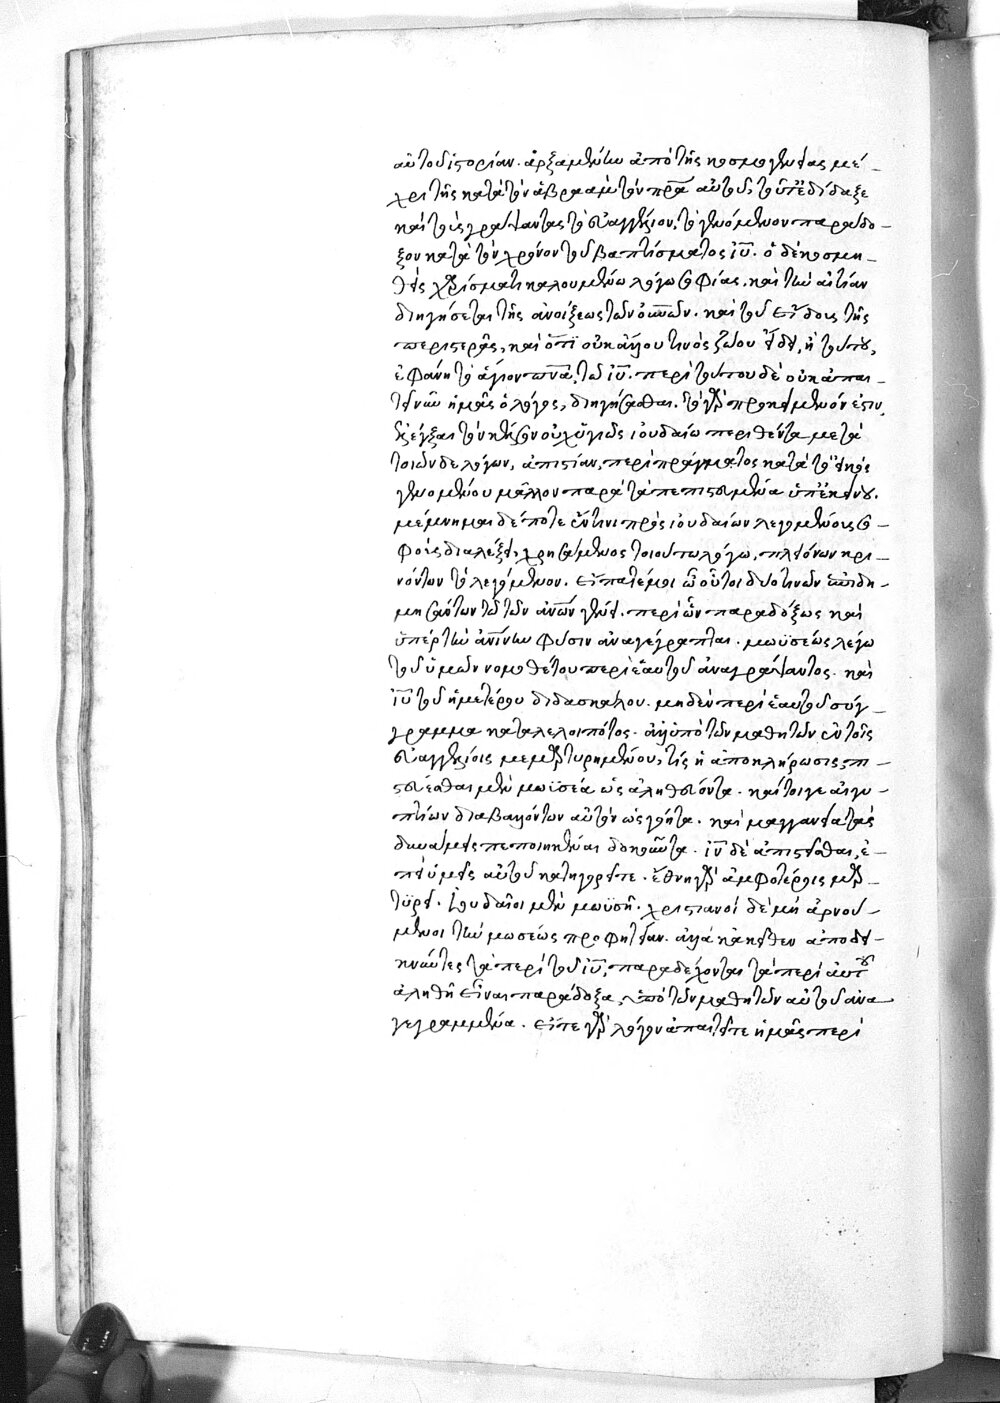 αὐτοῦ ἱστορίαν. ἀρξαμένην ἀπὸ τῆς κοσμογενείας μέ-
χρι τῆς κατὰ τὸν ἀβραὰμ τὸν πρα αὐτοῦ, τοῦτ' ἐδίδαξε
καὶ τοὺς γράψαντας τὸ εὐαγγέλιον, τὸ γενόμενον παράδο-
ξον κατὰ τὸν χρόνον τοῦ βαπτίσματος ιυ. ὁ δὲ κοσμη-
θεὶς χαρίσματι καλουμένω λόγω σοφίας, καὶ τὴν αἰτίαν
διηγήσεται τῆς ἀνοίξεως τῶν οὐνῶν. καὶ τοῦ εἴδους τῆς
περιστερᾶς, καὶ ὅτι οὐκ ἄλλου τινὸς ζώου εἴδει, ἢ τούτου,
ἐφάνη τὸ ἅγιον πνα, τῶ ιυ. περὶ τούτου δὲ οὐκ ἀπαι-
τεῖ νῦν ἡμᾶς ὁ λόγος, διηγήσασθαι. τὸ γὰρ προκείμενόν ἐστιν,
ἐλέγξαι τὸν κέλσον οὐ καλῶς ἰουδαίω περιθέντα μετὰ
τοιῶνδε λόγων, ἀπιστίαν, περὶ πράγματος κατὰ τὸ εἰκὸς
γενομένου μᾶλλον παρὰ τὰ πεπιστευμένα ὑπ' ἐκείνου.
μέμνημαι δέ ποτε ἔν τινι πρὸς ἰουδαίων λεγομένους σο-
φοὺς διαλέξει, χρησάμενος τοιούτω λόγω, πλειόνων κρι-
νόντων τὸ λεγόμενον. εἴπατέ μοι ὦ οὗτοι δύο τινῶν ἐπιδη-
μησάντων τῶ τῶν ανων γένει. περὶ ὧν παραδόξως καὶ
ὑπὲρ τὴν ανινην φύσιν ἀναγέγραπται. μωϋσέως λέγω
τοῦ ὑμῶν νομοθέτου περὶ ἑαυτοῦ ἀναγράψαντος. καὶ
ιυ τοῦ ἡμετέρου διδασκάλου. μηδὲν περὶ ἑαυτοῦ σύγ-
γραμμα καταλελοιπότος. ἀλλ' ὑπὸ τῶν μαθητῶν ἐν τοῖς
εὐαγγελίοις μεμαρτυρημένου, τίς ἡ ἀποκλήρωσις, πι-
στεύεσθαι μὲν μωϋσέα ὡς ἀληθεύοντα. καίτοιγε αἰγυ-
πτίων διαβαλλόντων αὐτὸν ὡς γόητα. καὶ μαγγανείαις τὰς
δυνάμεις πεποιηκέναι δοκοῦντα. ιν δὲ ἀπιστεῖσθαι, ἐ-
πεὶ ὑμεῖς αὐτοῦ κατηγορεῖτε. ἔθνη γὰρ ἀμφοτέροις μαρ-
τυρεῖ. ἰουδαῖοι μὲν μωϋσῆ. χριστιανοὶ δὲ μὴ ἀρνού-
μενοι τὴν μωσέως προφητείαν. ἀλλὰ κἀκεῖθεν ἀποδει-
κνύντες τὰ περὶ τοῦ ιυ, παραδέχονται τὰ περὶ αὐτοῦ
ἀληθῆ εἶναι παράδοξα, ὑπὸ τῶν μαθητῶν αὐτοῦ ἀνα
γεγραμμένα. εἴτε γὰρ λόγον ἀπαιτεῖτε ἡμᾶς περὶ